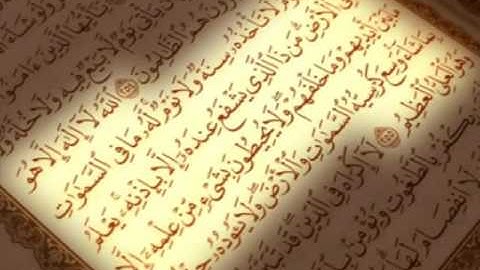 يوم لا بيع فيه ولا خلة
هم ٱلظَّٰلِمُونَ ٱللَّهُ لَآ إِلَٰهَ إِلَّا هُوَ
لَا تَأْخُذُهُۥ سِنَةٌ وَلَا نَوْمٌ لَّهُۥ مَا فِى ٱلسَّمَٰوَٰتِ
فِى ٱلْأَرْضِ مَن ذَا ٱلَّذِى يَشْفَعُ عِندَهُۥٓ إِلَّا بِإِذْنِهِۦ يَعْلَمُ
بَيْنَ أَيْدِيهِمْ وَمَا خَلْفَهُمْ وَلَا يُحِيطُونَ بِشَىْءٍ مِّنْ عِلْمِهِۦٓ إِلَّا
بِمَا شَآءَ وَسِعَ كُرْسِيُّهُ ٱلسَّمَٰوَٰتِ وَٱلْأَرْضَ وَلَا يَـُٔودُهُۥ
وَهُوَ ٱلْعَلِىُّ ٱلْعَظِيمُ لَآ إِكْرَاهَ فِى ٱلدِّينِ قَد تَّبَيَّنَ
يكفر بٱلطَّٰغُوتِ وَيُؤْمِنۢ
ٱنفِصَامَ لَهَا